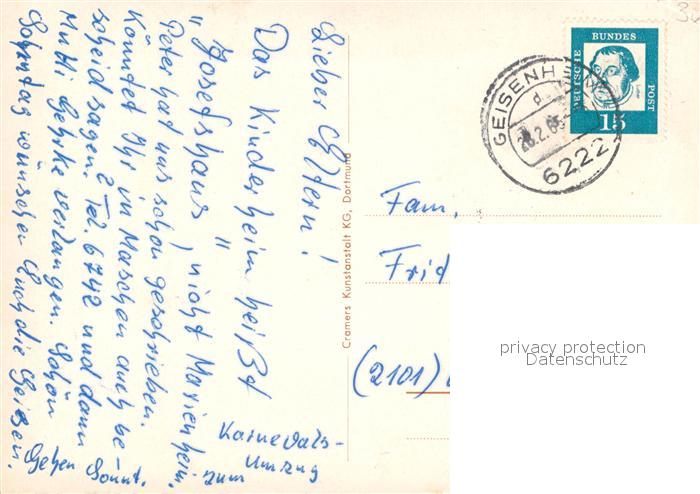 Lieber Eltern!
Das Kinderheim heißt
"Josefshaus", nicht Marienheim.
Peter hat uns schon geschrieben.
Könntet Ihr in Maschen auch be-
scheid sagen. 2 Tel. 6742 und dann
Mutti Gehrke verlangen. Schön
Sonntag wünschen Euch die Geisen.
Gehen Sonnt.
zum
Karnevals-
Umzug
Cramers Kunstanstalt KG, Dortmund
GEISENH
d
26.2.65
6222
DEUTSCHE BUNDES POST
15
Fam,
Frid
(2101)
privacy protection
Datenschutz